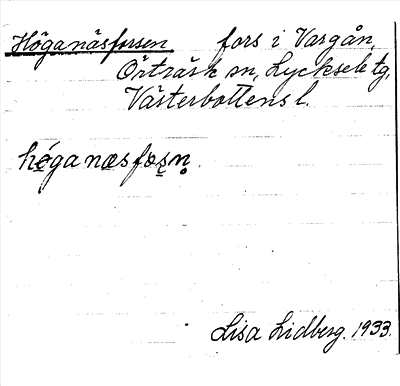 Höganäsforsen fors i Vargån,
Örträsk sn, Lycksele tg,
Västerbottens l.
höganæsfosn.
Lisa Lidberg. 1933.